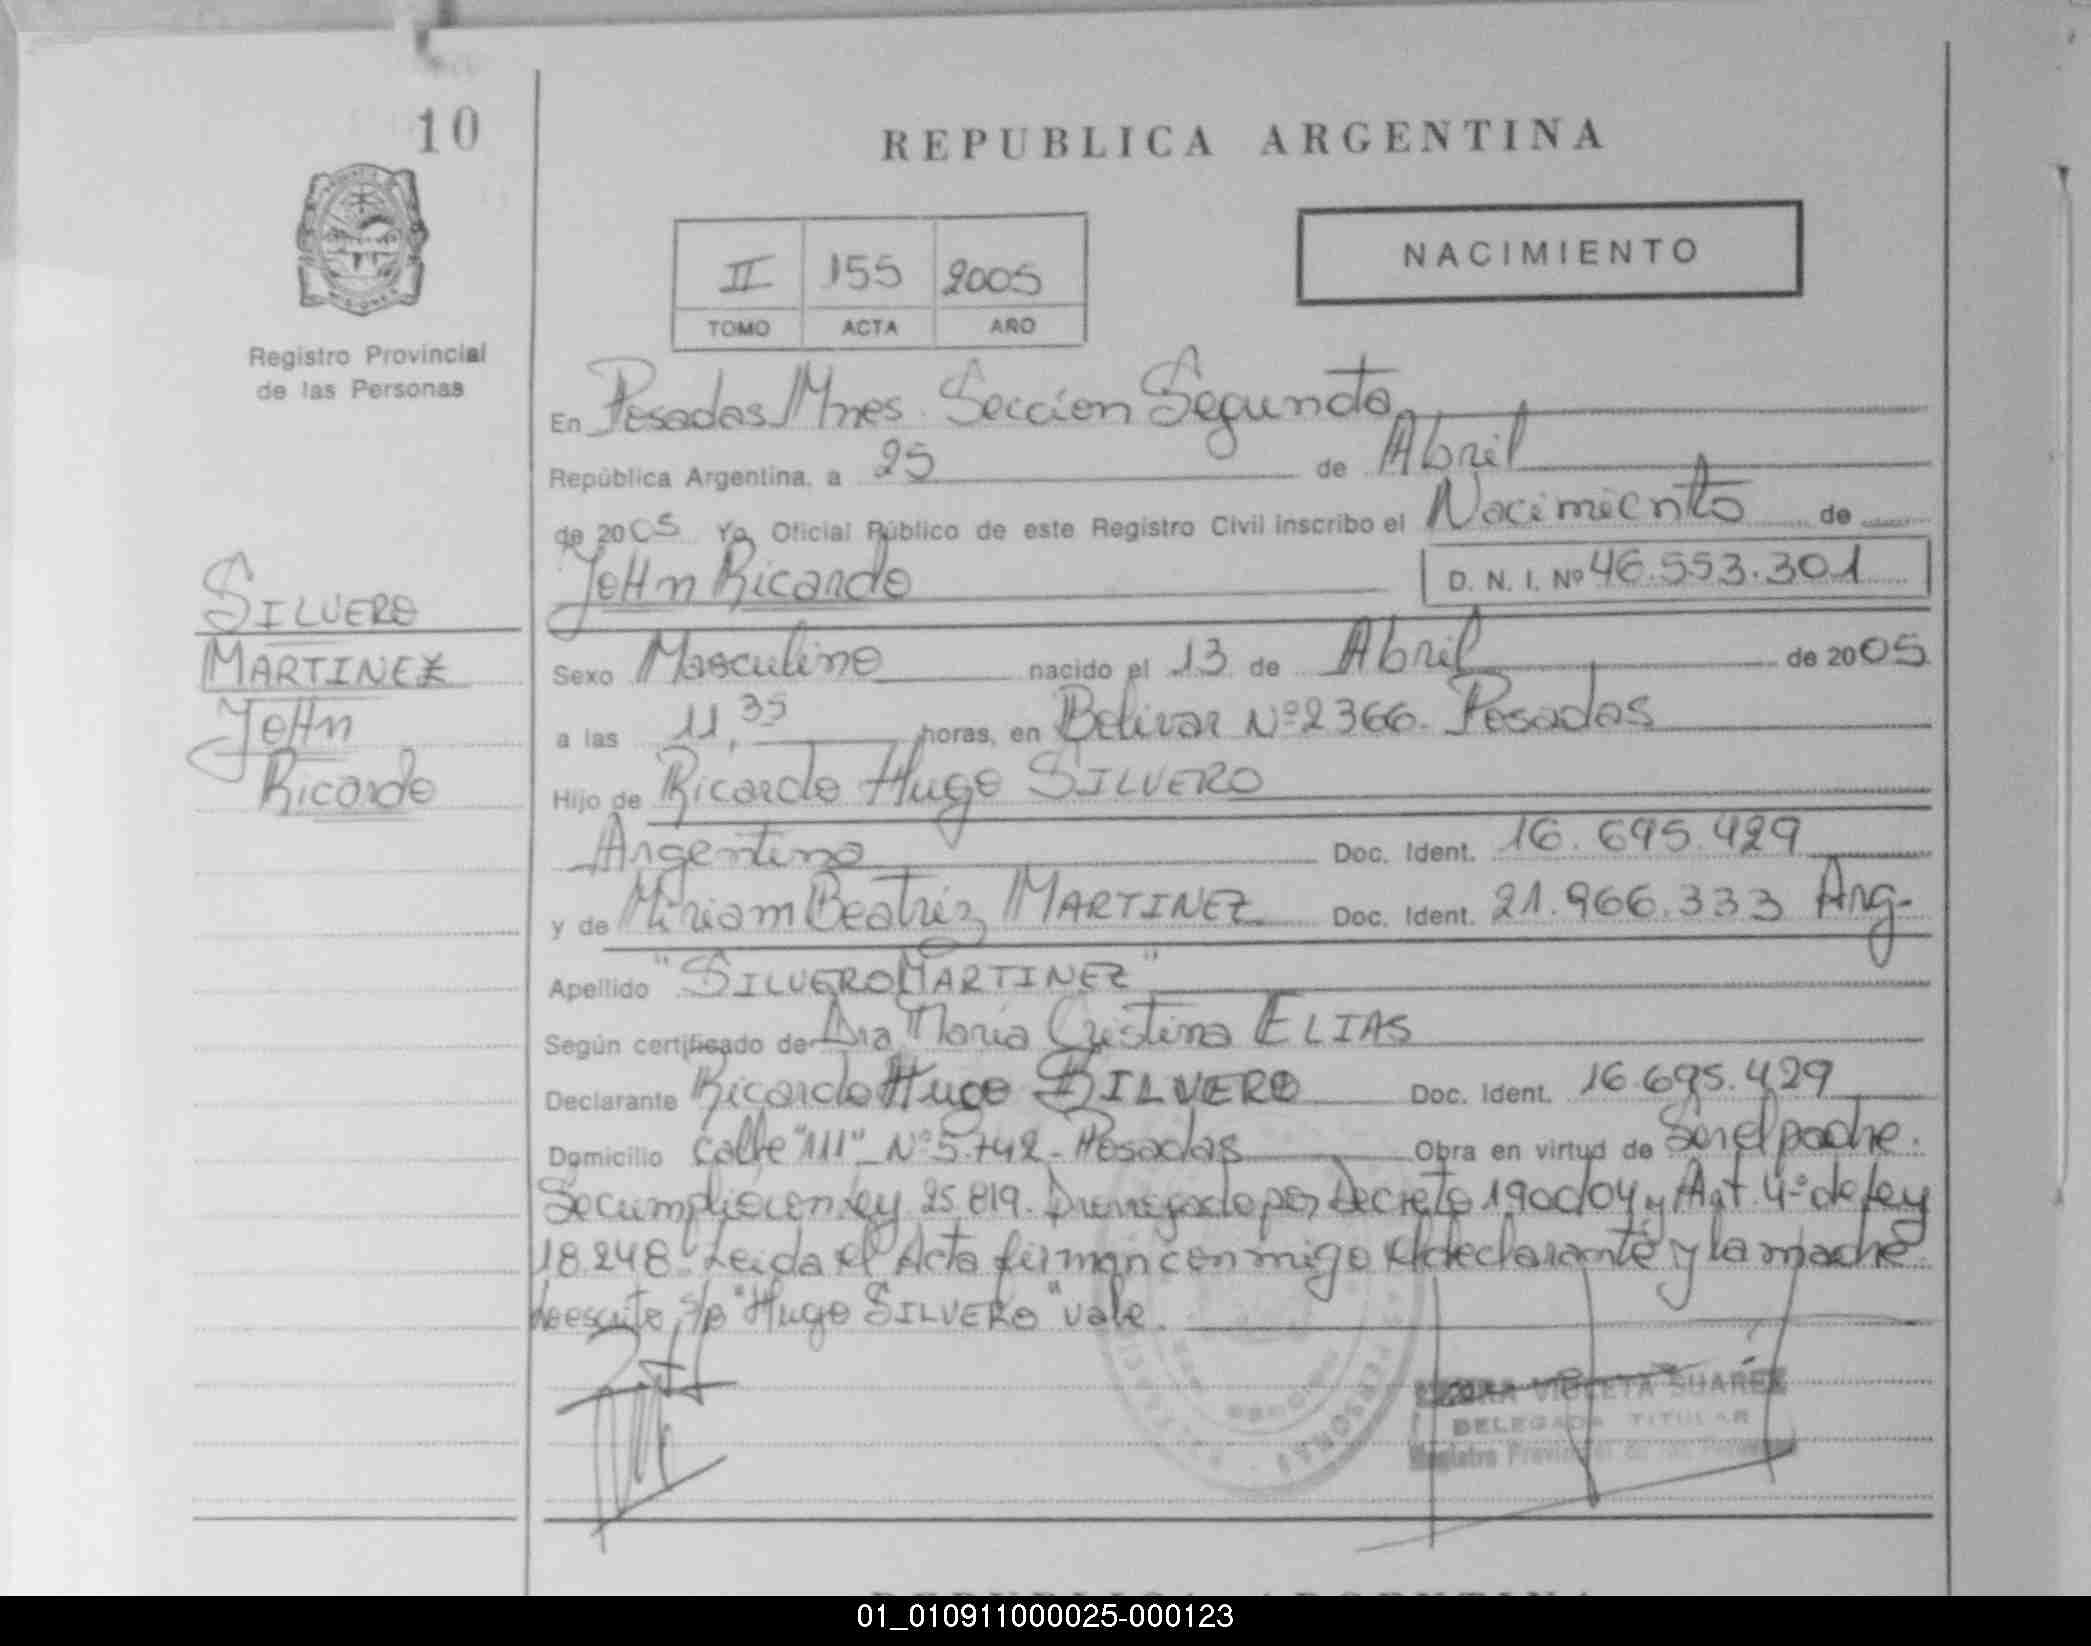 10
REPUBLICA ARGENTINA
NACIMIENTO
II 155 2005
TOMO ACTA AÑO
Registro Provincial
de las Personas
En Posadas Mnes. Sección Segunda
República Argentina, a 25 de Abril
de 2005 Yo, Oficial Público de este Registro Civil inscribo el Nacimiento de
JoHn Ricardo D. N. I. Nº 46.553.301
SILVERO
MARTINEZ
JoHn
Ricardo
Sexo Masculino nacido el 13 de Abril de 2005
a las 11,35 horas, en Bolivar Nº 2366. Posadas
Hijo de Ricardo Hugo SILVERO
Argentino Doc. Ident. 16.695.429
y de Miriam Beatriz MARTINEZ Doc. Ident. 21.966.333 Arg-
Apellido "SILVERO MARTINEZ"
Según certificado de Dra Maria Cristina ELIAS
Declarante Ricardo Hugo SILVERO Doc. Ident. 16.695.429
Domicilio Calle "111" Nº 5.742 - Posadas Obra en virtud de Ser el padre.
Se cumplió con Ley 25.819. Prorrogado por Decreto 190d/04 y Art. 4º de Ley
18.248- Leida el Acta firman conmigo el declarante y la madre.
s/p "Hugo SILVERO" vale.
VIOLETA SUAREZ
DELEGADA TITULAR
Registro Provincial de las Personas
01_010911000025-000123